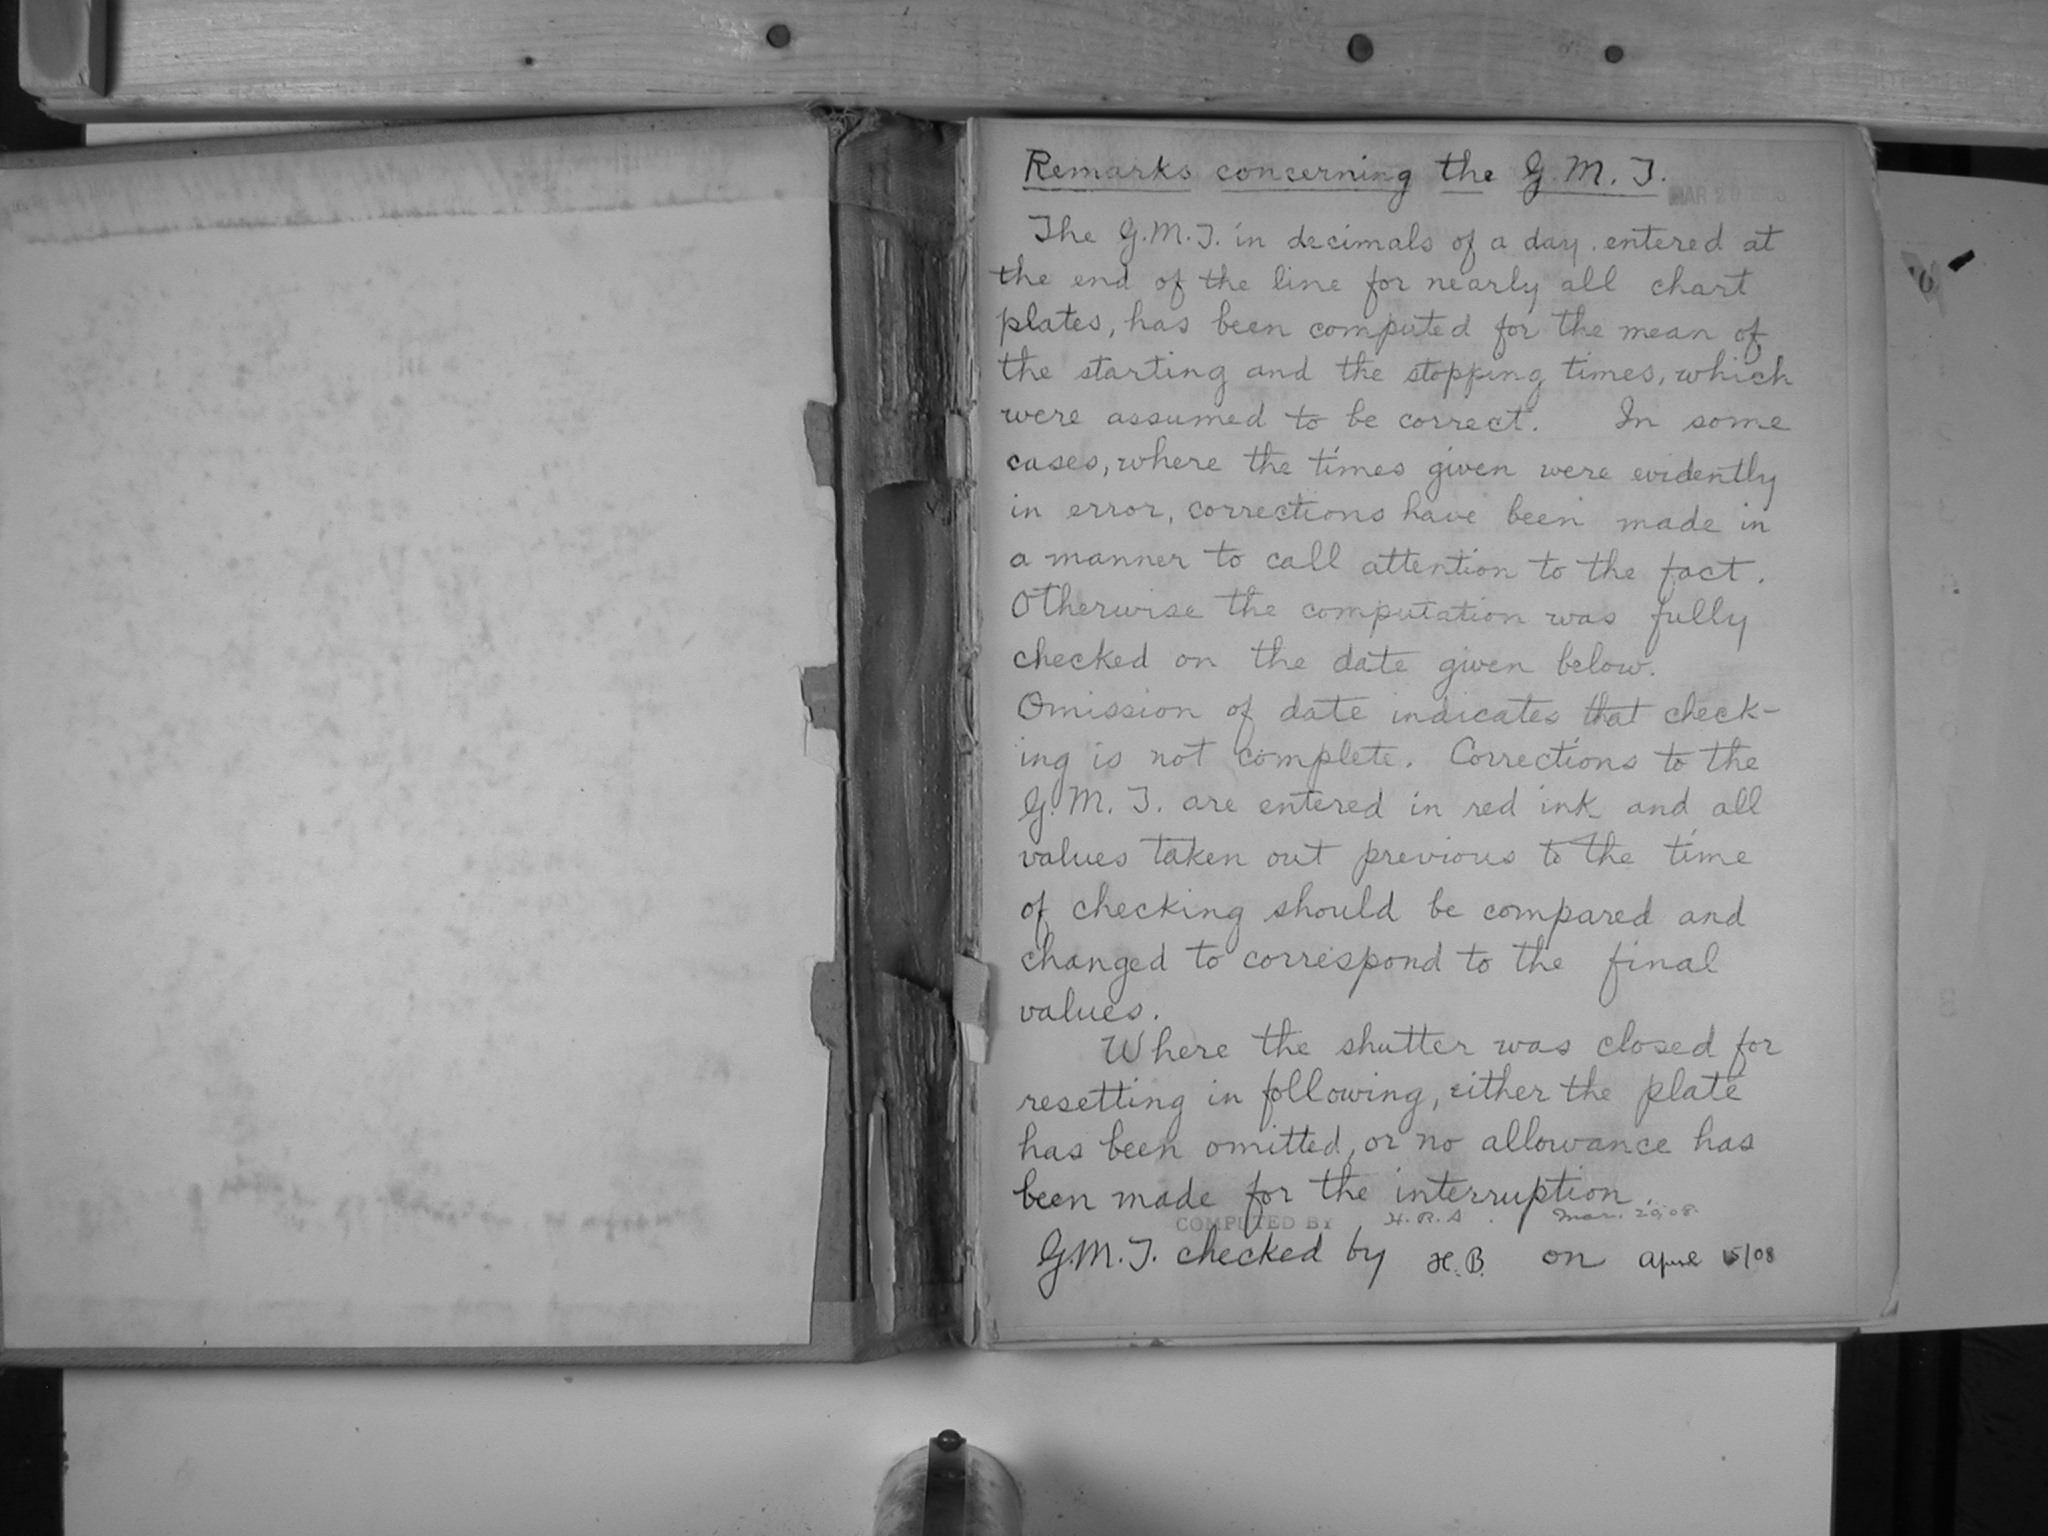 Remarks concerning the G.M.T.
MAR 20
The G.M.T. in decimals of a day, entered at
the end of the line for nearly all chart
plates, has been computed for the mean of
the starting and the stopping times, which
were assumed to be correct. In some
cases, where the times given were evidently
in error, corrections have been made in
a manner to call attention to the fact.
Otherwise the computation was fully
checked on the date given below.
Omission of date indicates that check-
ing is not complete. Corrections to the
G.M.T. are entered in red ink and all
values taken out previous to the time
of checking should be compared and
changed to correspond to the final
values.
Where the shutter was closed for
resetting in following, either the plate
has been omitted, or no allowance has
been made for the interruption.
COMPUTED BY H.R.S. Mar. 20,08.
G.M.T. checked by H.B. on April 15/08